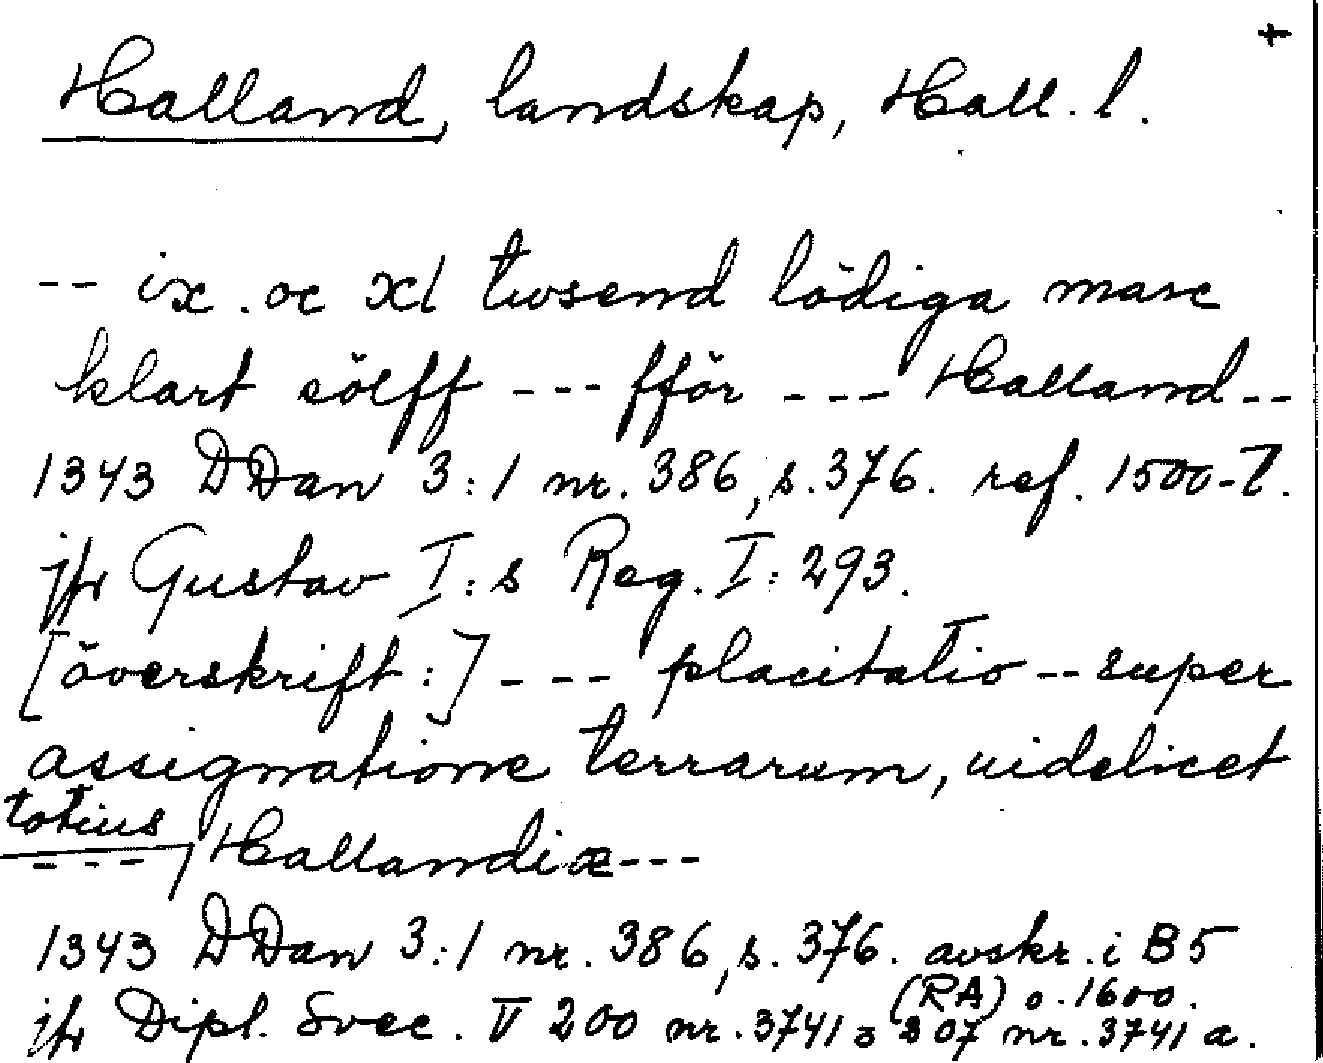 +
Halland, landskap, Hall. l.
-- ix . oc xl twsend lödiga marc
klart sölff --- fför --- Halland --
1343 DDan 3:1 nr. 386, s. 376. ref. 1500-T.
jfr Gustav I:s Reg. I: 293.
[överskrift:] --- placitatio -- super
assignatione terrarum, uidelicet
totius
--- Hallandiæ ---
1343 DDan 3:1 nr. 386, s. 376. avskr. i B5
(RA) o. 1600.
jfr Dipl. Svec. V 200 nr. 3741 307 nr. 3741 a.